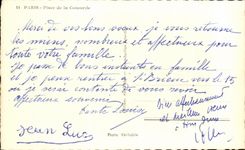 54 PARIS - Place de la Concorde
Merci de vos bons vœux je vous retourne
les miens, nombreux et affectueux pour
toute votre famille
Je jouis de bons instants en famille
et je peux rentrer à St Brieuc vers le 15
où je serai contente de vous revoir
affectueux souvenir
Tante Louise
Jean Luc
Bien affectueusement
et meilleurs vœux
à tous